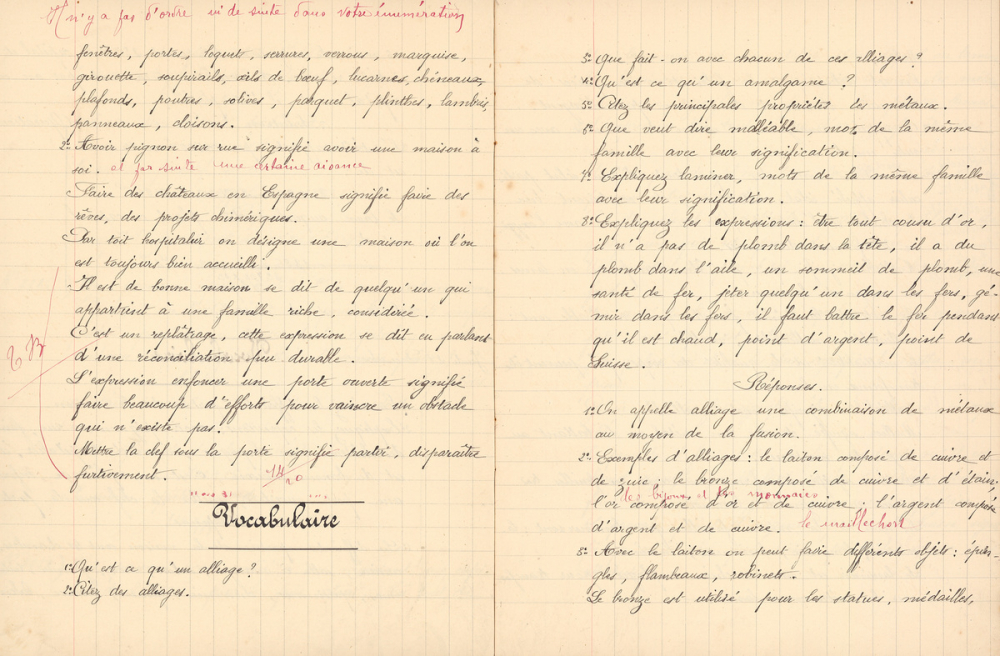 Il n'y a pas d'ordre ni de suite dans votre énumération
fenêtres, portes, loquets, serrures, verrous, marquise,
girouette, soupirails, œils de bœuf, lucarnes, chéneaux,
plafonds, poutres, solives, parquet, plinthes, lambris,
panneaux, cloisons.
2º Avoir pignon sur rue signifie avoir une maison à
soi. et par suite une certaine aisance
Faire des châteaux en Espagne signifie faire des
rêves, des projets chimériques.
Par toit hospitalier on désigne une maison où l'on
est toujours bien accueilli.
Il est de bonne maison se dit de quelqu'un qui
appartient à une famille riche, considérée.
T. B
C'est un replâtrage, cette expression se dit en parlant
d'une réconciliation peu durable.
L'expression enfoncer une porte ouverte signifie
faire beaucoup d'efforts pour vaincre un obstacle
qui n'existe pas.
Mettre la clef sous la porte signifie partir, disparaître
furtivement.
14/20
Vocabulaire
1º Qu'est ce qu'un alliage ?
2º Citez des alliages.
3º Que fait-on avec chacun de ces alliages ?
4º Qu'est ce qu'un amalgame ?
5º Citez les principales propriétés des métaux.
6º Que veut dire malléable, mots de la même
famille avec leur signification.
7º Expliquez laminer, mots de la même famille
avec leur signification.
8º Expliquez les expressions : être tout cousu d'or,
il n'a pas de plomb dans la tête, il a du
plomb dans l'aile, un sommeil de plomb, une
santé de fer, jeter quelqu'un dans les fers, gé-
mir dans les fers, il faut battre le fer pendant
qu'il est chaud, point d'argent, point de
Suisse.
Réponses.
1º On appelle alliage une combinaison de métaux
au moyen de la fusion.
2º Exemples d'alliages : le laiton composé de cuivre et
de zinc ; le bronze composé de cuivre et d'étain,
les bijoux et les monnaies
l'or composé d'or et de cuivre ; l'argent composé
d'argent et de cuivre. le maillechort
3º Avec le laiton on peut faire différents objets : épin-
gles, flambeaux, robinets.
Le bronze est utilisé pour les statues, médailles,